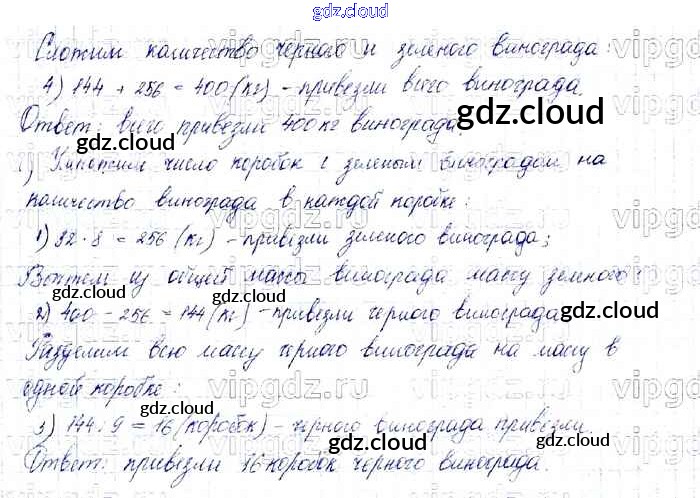 gdz.cloud
Сложим количество черного и зеленого винограда:
4) 144 + 256 = 400 (кг) - привезли всего винограда.
gdz.cloud
Ответ: всего привезли 400 кг винограда
gdz.cloud
1) Умножим число коробок с зеленым виноградом на
количество винограда в каждой коробке:
1) 32 · 8 = 256 (кг) - привезли зеленого винограда;
Вычтем из общей массы винограда массу зеленого:
gdz.cloud
2) 400 - 256 = 144 (кг) - привезли черного винограда
gdz.cloud
Разделим всю массу черного винограда на массу в
одной коробке:
gdz.cloud
gdz.cloud
3) 144 : 9 = 16 (коробок) - черного винограда привезли.
gdz.cloud
Ответ: привезли 16 коробок черного винограда.
gdz.cloud
vipgdz.ru